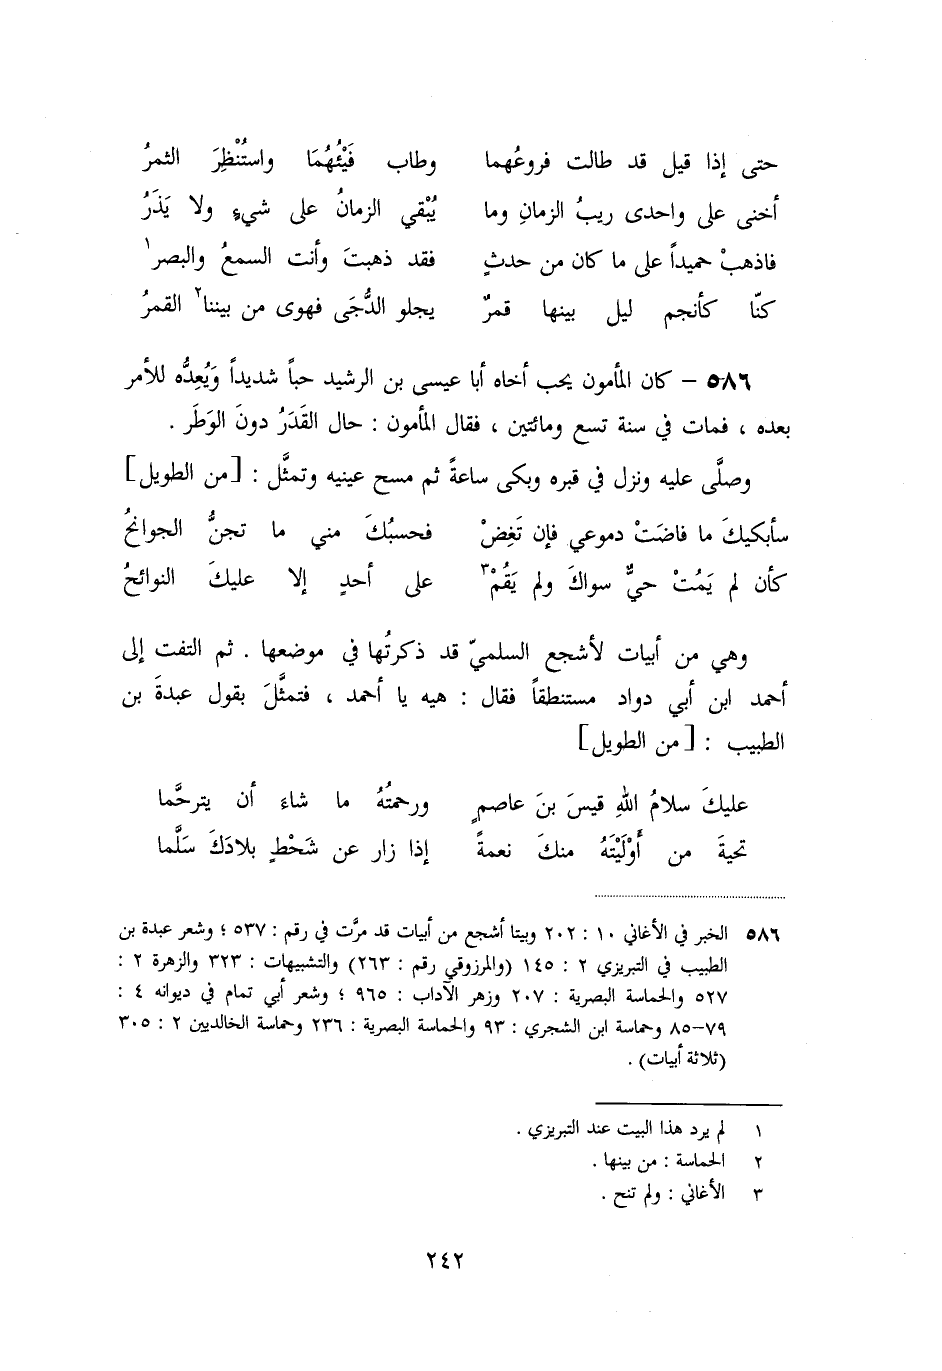 حتى إذا قيل قد طالت فروعُهما وطاب فَيْئُهُمَا واستُنْظِرَ الثمرُ
أخنى على واحدى ريبُ الزمانِ وما يُبْقي الزمانُ على شيءٍ ولا يَذَرُ
فاذهبْ حميداً على ما كان من حدثٍ فقد ذهبتَ وأنت السمعُ والبصر١
كنّا كأنجم ليل بينها قمرٌ يجلو الدُّجَى فهوى من بيننا٢ القمرُ
٥٨٦ – كان المأمون يحب أخاه أبا عيسى بن الرشيد حباً شديداً وَيُعِدُّه للأمر
بعده ، فمات في سنة تسع ومائتين ، فقال المأمون : حال القَدَرُ دونَ الوَطَر .
وصلَّى عليه ونزل في قبره وبكى ساعةً ثم مسح عينيه وتمثَّل : [من الطويل]
سأبكيكَ ما فاضَتْ دموعي فإن تَغِضْ فحسبُكَ مني ما تجنُّ الجوانحُ
كأن لم يَمُتْ حيٌّ سواكَ ولم يَقُمْ٣ على أحدٍ إلا عليكَ النوائحُ
وهي من أبيات لأشجع السلميّ قد ذكرتُها في موضعها . ثم التفت إلى
أحمد ابن أبي دواد مستنطقاً فقال : هيه يا أحمد ، فتمثَّلَ بقول عبدةَ بن
الطبيب : [من الطويل]
عليكَ سلامُ اللهِ قيسَ بنَ عاصمٍ ورحمتُهُ ما شاءَ أن يترحَّما
تحيةَ من أَوْلَيْتَهُ منكَ نعمةً إذا زار عن شَحْطٍ بلادَكَ سَلَّما
٥٨٦ الخبر في الأغاني ١٠ : ٢٠٢ وبيتا أشجع من أبيات قد مرَّت في رقم : ٥٣٧ ؛ وشعر عبدة بن
الطبيب في التبريزي ٢ : ١٤٥ (والمرزوقي رقم : ٢٦٣) والتشبيهات : ٣٢٣ والزهرة ٢ :
٥٢٧ والحماسة البصرية : ٢٠٧ وزهر الآداب : ٩٦٥ ؛ وشعر أبي تمام في ديوانه ٤ :
٧٩–٨٥ وحماسة ابن الشجري : ٩٣ والحماسة البصرية : ٢٣٦ وحماسة الخالديين ٢ : ٣٠٥
(ثلاثة أبيات) .
١ لم يرد هذا البيت عند التبريزي .
٢ الحماسة : من بينها .
٣ الأغاني : ولم تنح .
٢٤٢